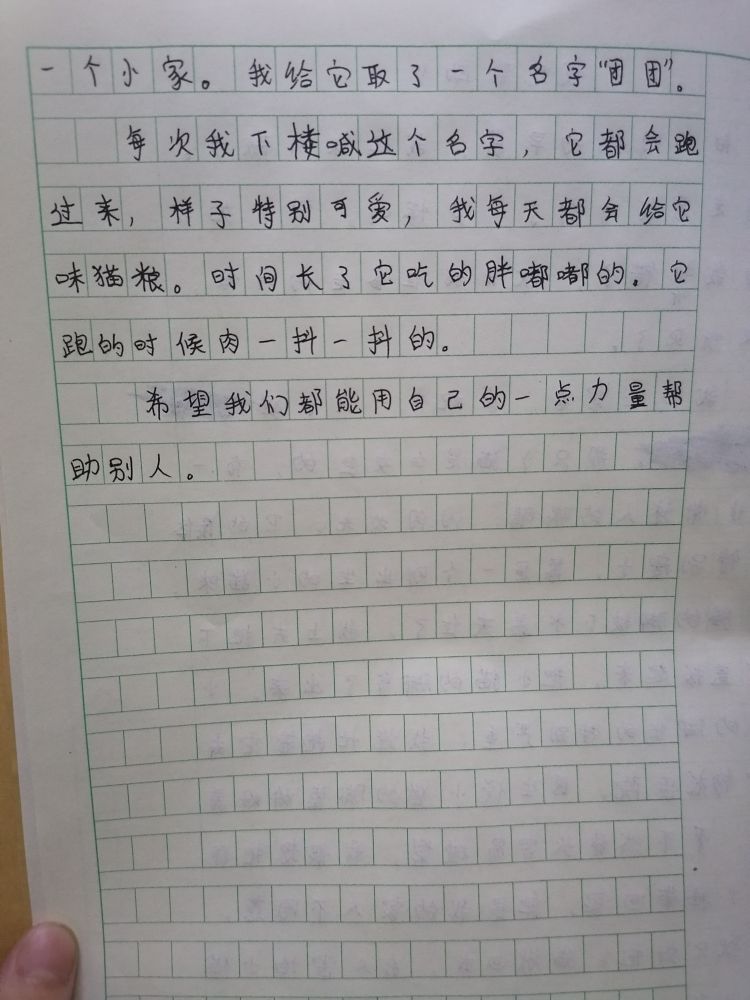 一个小家。我给它取了一个名字“团团”。
每次我下楼喊这个名字，它都会跑
过来，样子特别可爱，我每天都会给它
味猫粮。时间长了它吃的胖嘟嘟的。它
跑的时候肉一抖一抖的。
希望我们都能用自己的一点力量帮
助别人。